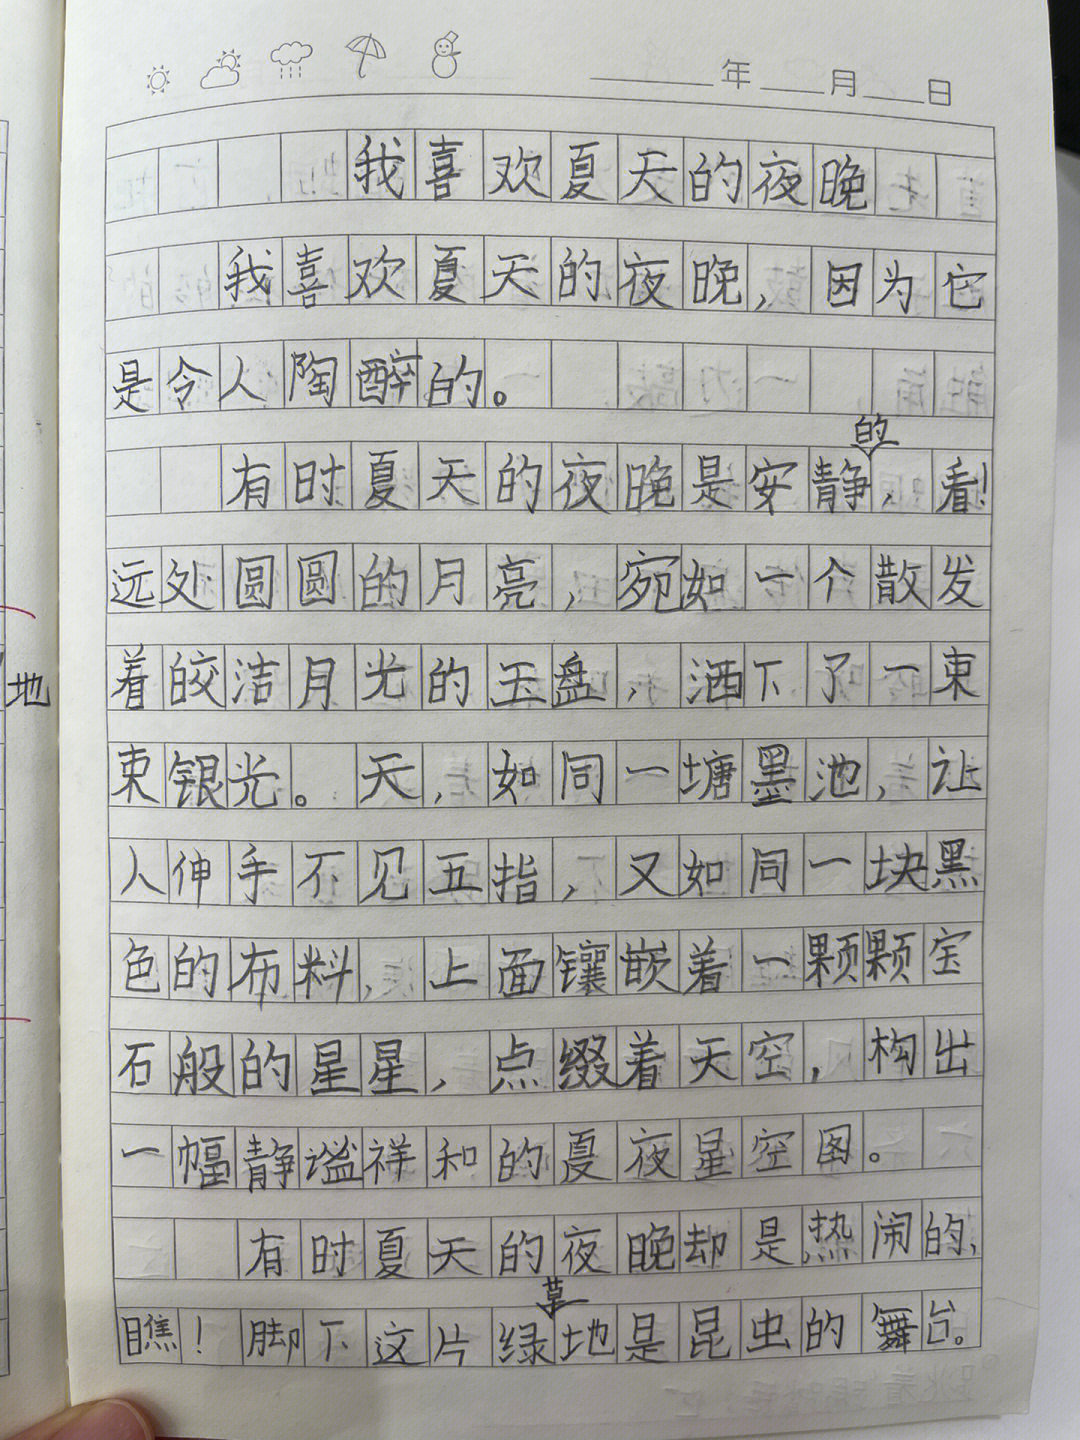 年 月 日
我喜欢夏天的夜晚
我喜欢夏天的夜晚，因为它
是令人陶醉的。
有时夏天的夜晚是安静的，看！
远处圆圆的月亮，宛如一个散发
着皎洁月光的玉盘，洒下了一束
束银光。天，如同一塘墨池，让
人伸手不见五指，又如同一块黑
色的布料，上面镶嵌着一颗颗宝
石般的星星，点缀着天空，构出
一幅静谧祥和的夏夜星空图。
有时夏天的夜晚却是热闹的，
瞧！脚下这片绿草地是昆虫的舞台。
地